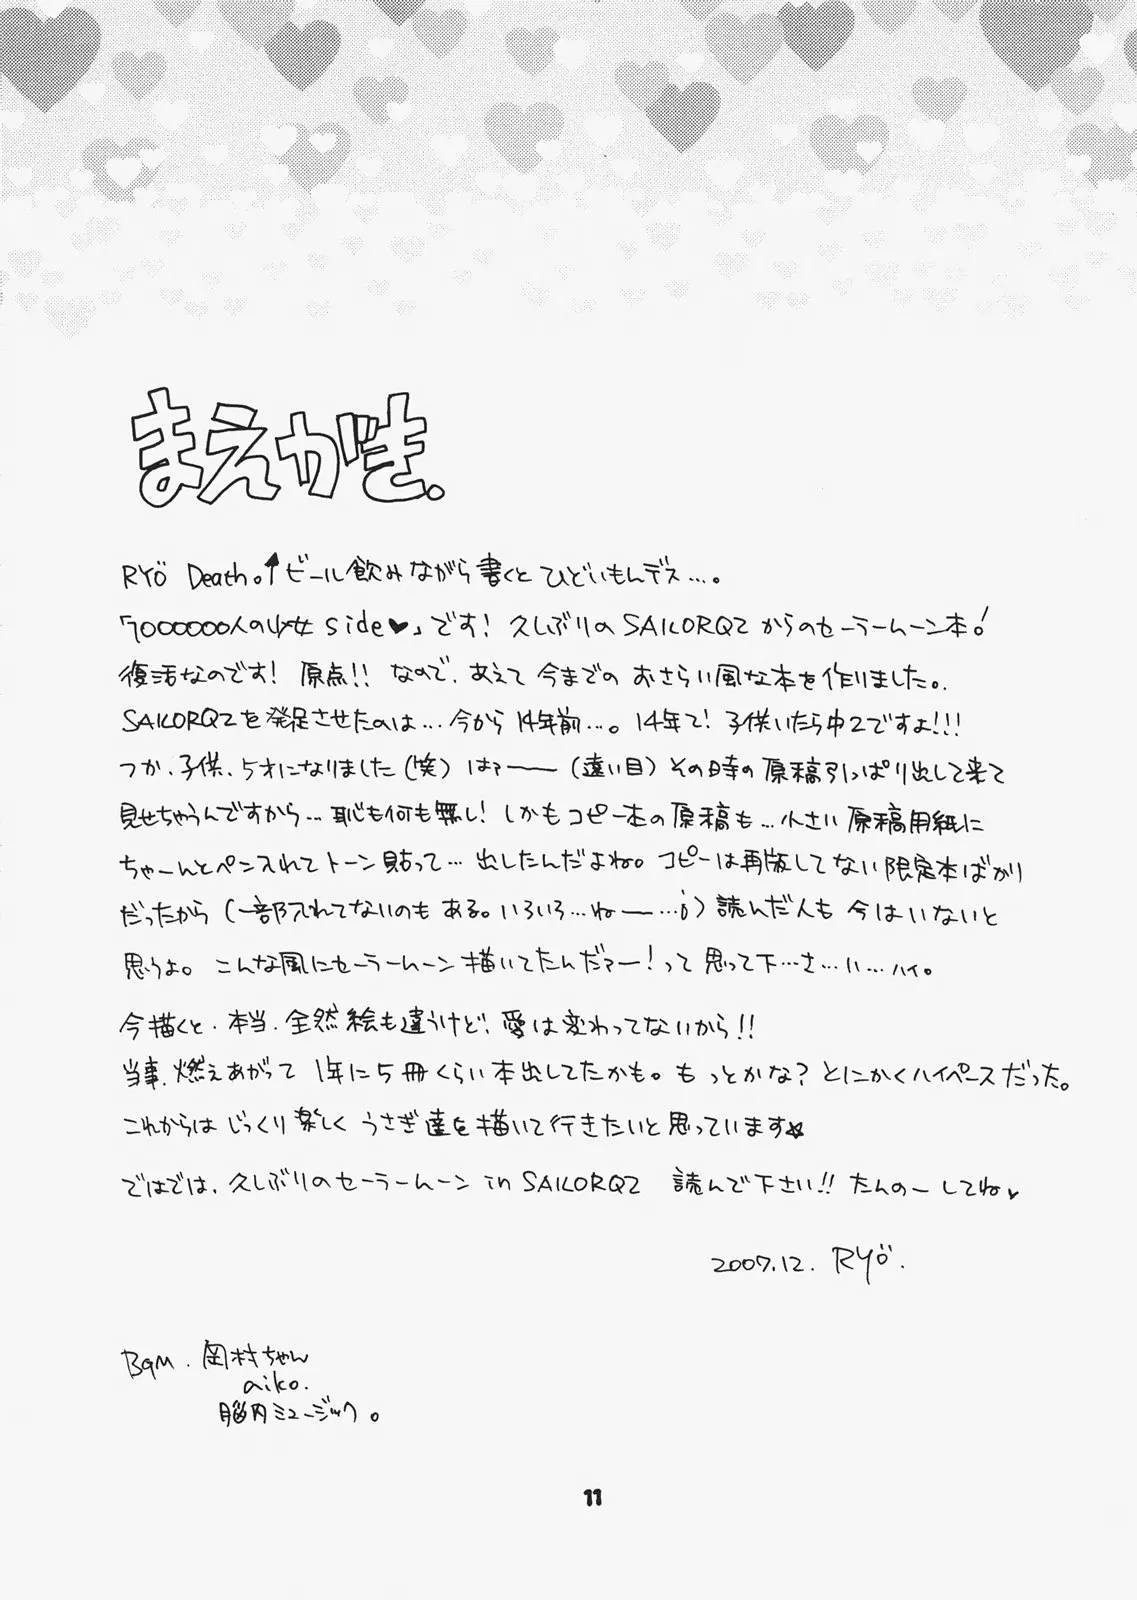 まえがき。
RYÖ Death。↑ビール飲みながら書くとひどいもんデス…。
「7000000人の少女side♥」です! 久しぶりのSAILORQ2からのセーラームーン本!
復活なのです! 原点!! なので、あえて今までのおさらい風な本を作りました。
SAILORQ2を発足させたのは…今から14年前…。14年で! 子供いたら中2ですよ!!!
つか、子供、5才になりました(笑) はァーー(遠い目)その時の原稿引っぱり出して来て
見せちゃうんですから…恥も何も無し! しかもコピー本の原稿も…小さい原稿用紙に
ちゃーんとペン入れてトーン貼って…出したんだよね。コピーは再版してない限定本ばかり
だったから(一部入れてないのもある。いろいろ…ねー…)読んだ人も今はいないと
思うよ。こんな風にセーラームーン描いてたんだァー!って思って下…さ…い…ハイ。
今描くと、本当、全然絵も違うけど、愛は変わってないから!!
当事、燃えあがって1年に5冊くらい本出してたかも。もっとかな?とにかくハイペースだった。
これからはじっくり楽しくうさぎ達を描いて行きたいと思っています☆
ではでは、久しぶりのセーラームーン in SAILORQ2 読んで下さい!! たんのーしてね♥
2007.12. RYÖ.
BGM. 岡村ちゃん
aiko.
脳内ミュージック。
11